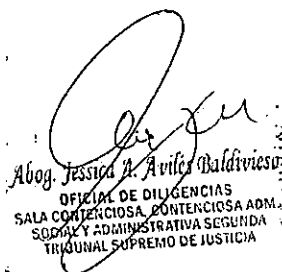 Abog. Jessica A. Aviles Baldivieso
OFICIAL DE DILIGENCIAS
SALA CONTENCIOSA, CONTENCIOSA ADM.,
SOCIAL Y ADMINISTRATIVA SEGUNDA
TRIBUNAL SUPREMO DE JUSTICIA